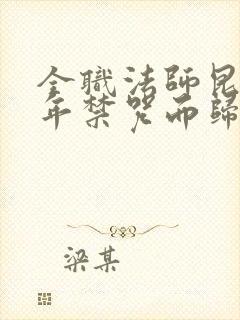 全職法師昆
年禁咒而歸
梁某